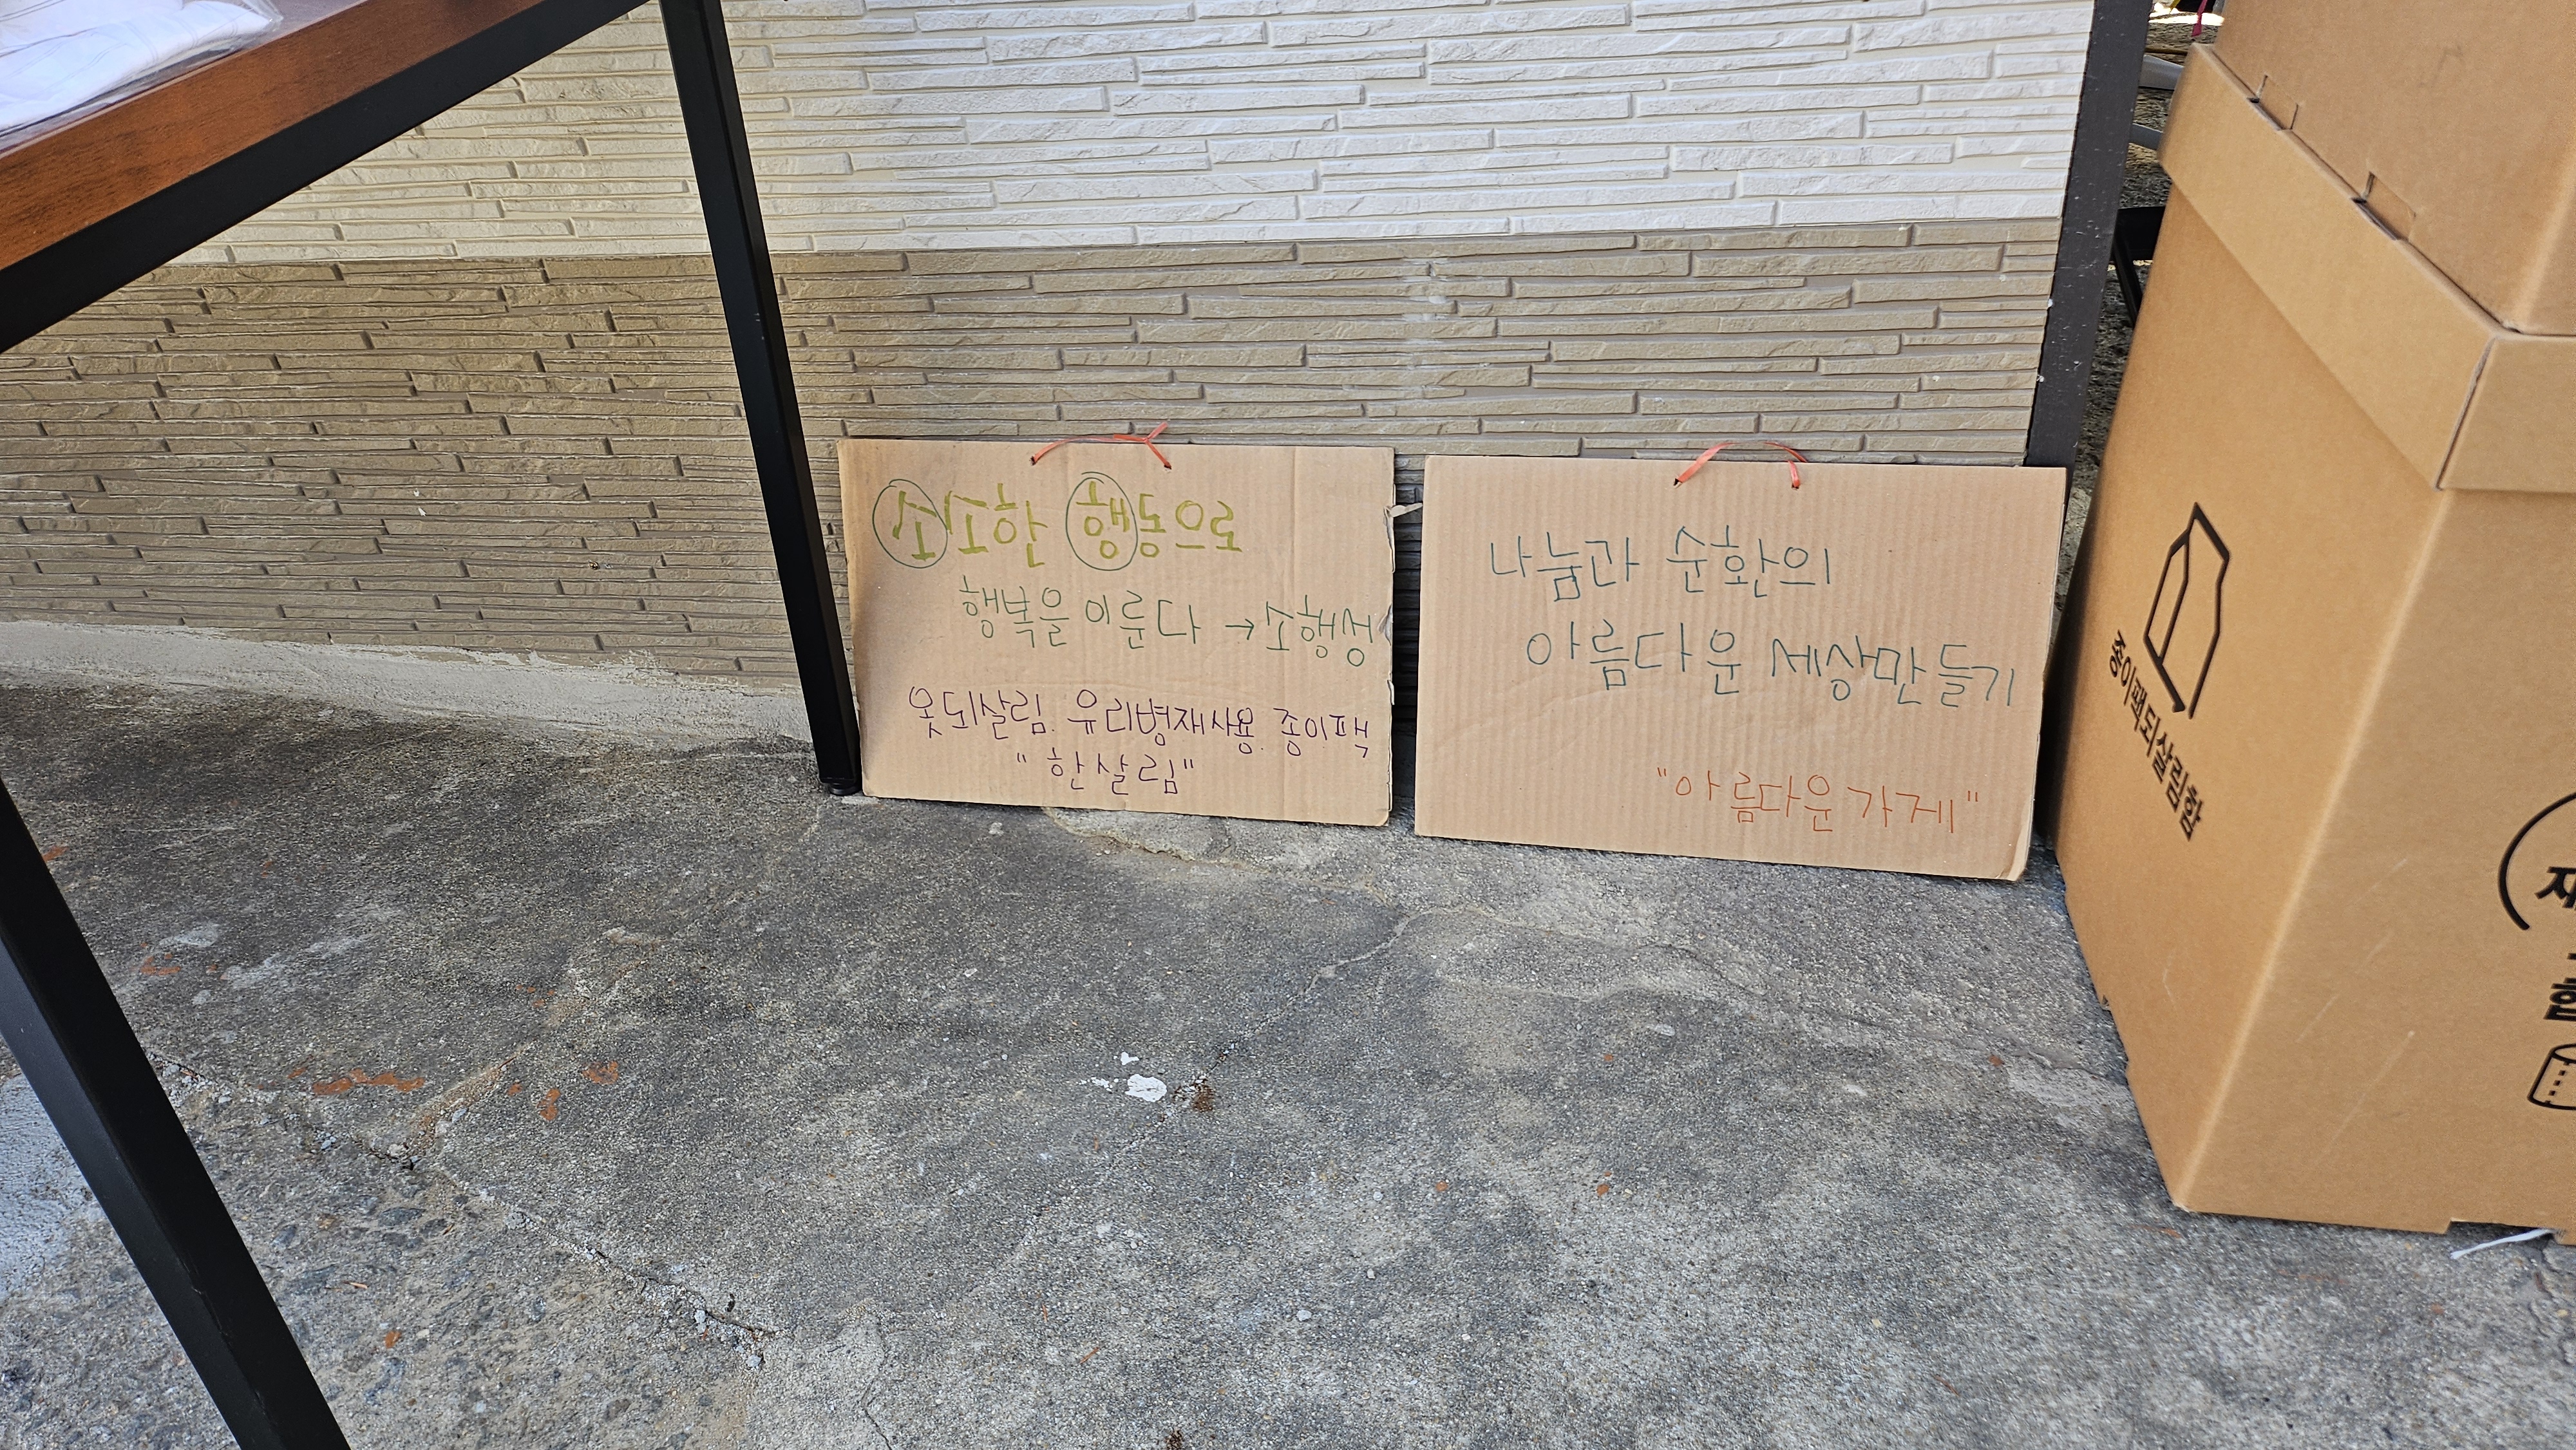 소소한 행동으로
행복을 이룬다 → 소행성
옷되살림. 유리병재사용. 종이팩
"한살림"
나눔과 순환의
아름다운 세상만들기
"아름다운가게"
종이팩되살림함